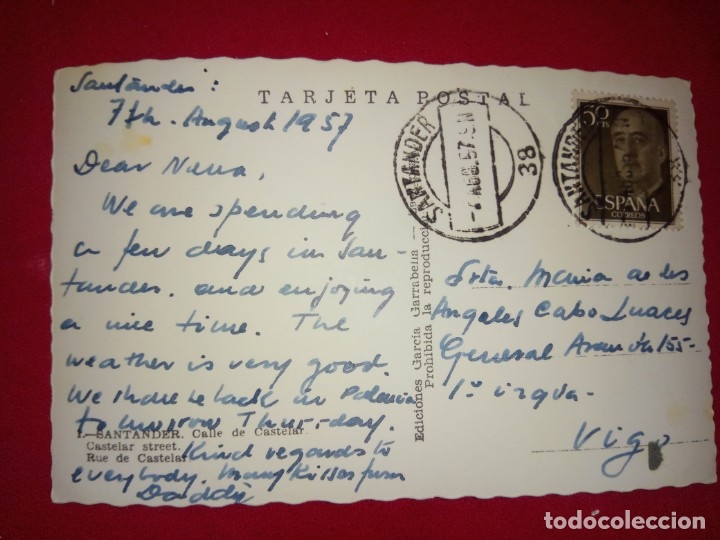 Santander:
7th. August 1957
TARJETA POSTAL
Dear Nena,
We are spending
a few days in San-
tander. and enjoying
a nice time. The
weather is very good.
We shall be back in
tomorrow Thursday.
Kind regards to
everybody. Many Kisses from
Daddy
1. - SANTANDER. Calle de Castelar
Castelar street.
Rue de Castelar
Ediciones García Garrabella
Prohibida la reproducción
SANTANDER
-7 AGO. 57. 9N
38
50
CTS
ESPAÑA
CORREOS
SANTANDER
Srta. Maria de los
Angeles Cabo Luaces
General Aranda 155-
1º izqda.
Vigo
todocoleccion
todocoleccion.net